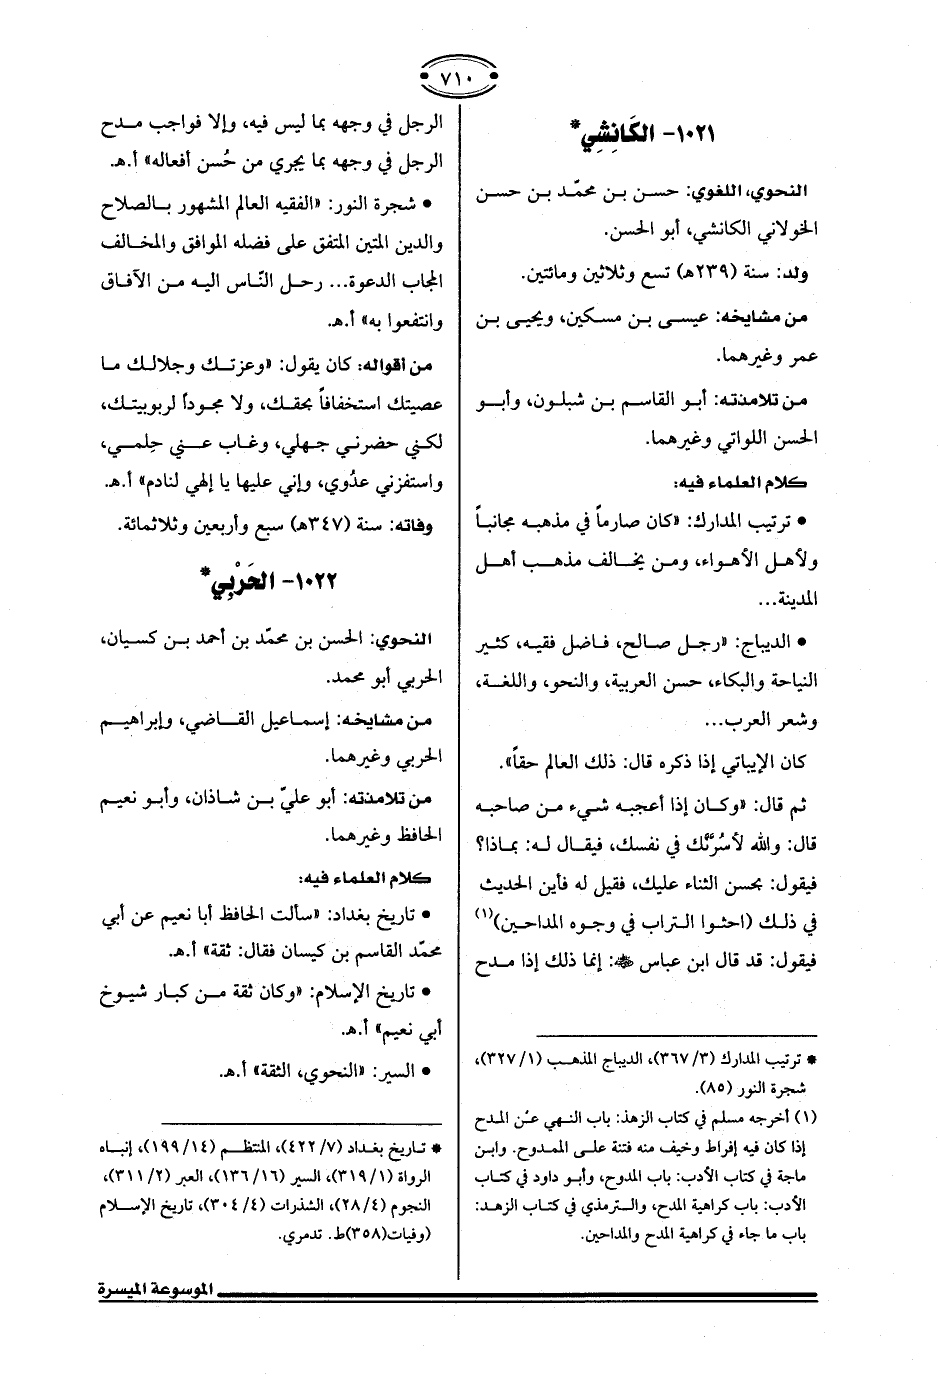 ٧١٠
١٠٢١- الكَانِشِي*
النحوي، اللغوي: حسن بن محمّد بن حسن
الخولاني الكانشي، أبو الحسن.
ولد: سنة (٢٣٩هـ) تسع وثلاثين ومائتين.
من مشايخه: عيسى بن مسكين، ويحيى بن
عمر وغيرهما.
من تلامذته: أبو القاسم بن شبلون، وأبو
الحسن اللواتي وغيرهما.
كلام العلماء فيه:
• ترتيب المدارك: «كان صارماً في مذهبه مجانباً
ولأهل الأهواء، ومن يخالف مذهب أهل
المدينة...
• الديباج: «رجل صالح، فاضل فقيه، كثير
النياحة والبكاء، حسن العربية، والنحو، واللغة،
وشعر العرب...
كان الإبياتي إذا ذكره قال: ذلك العالم حقاً».
ثم قال: «وكان إذا أعجبه شيء من صاحبه
قال: والله لأسُرَّنَّك في نفسك، فيقال له: بماذا؟
فيقول: بحسن الثناء عليك، فقيل له فأين الحديث
في ذلك (احثوا التراب في وجوه المداحين)(١)
فيقول: قد قال ابن عباس ﷺ: إنما ذلك إذا مدح
* ترتيب المدارك (٣/ ٣٦٧)، الديباج المذهب (١/ ٣٢٧)،
شجرة النور (٨٥).
(١) أخرجه مسلم في كتاب الزهد: باب النهي عن المدح
إذا كان فيه إفراط وخيف منه فتنة على الممدوح. وابن
ماجة في كتاب الأدب: باب المدوح، وأبو داود في كتاب
الأدب: باب كراهية المدح، والترمذي في كتاب الزهد:
باب ما جاء في كراهية المدح والمداحين.
الرجل في وجهه بما ليس فيه، وإلا فواجب مدح
الرجل في وجهه بما يجري من حُسن أفعاله» أ.هـ.
• شجرة النور: «الفقيه العالم المشهور بالصلاح
والدين المتين المتفق على فضله الموافق والمخالف
المجاب الدعوة... رحل النّاس اليه من الآفاق
وانتفعوا به» أ.هـ.
من أقواله: كان يقول: «وعزتك وجلالك ما
عصيتك استخفافاً بحقك، ولا جحوداً لربوبيتك،
لكني حضرني جهلي، وغاب عني حِلمي،
واستفزني عدُوي، وإني عليها يا إلهي لنادم» أ.هـ.
وفاته: سنة (٣٤٧هـ) سبع وأربعين وثلاثمائة.
١٠٢٢- الحَرْبِي*
النحوي: الحسن بن محمّد بن أحمد بن كسيان،
الحربي أبو محمد.
من مشايخه: إسماعيل القاضي، وإبراهيم
الحربي وغيرهما.
من تلامذته: أبو عليّ بن شاذان، وأبو نعيم
الحافظ وغيرهما.
كلام العلماء فيه:
• تاريخ بغداد: «سألت الحافظ أبا نعيم عن أبي
محمّد القاسم بن كيسان فقال: ثقة» أ.هـ.
• تاريخ الإسلام: «وكان ثقة من كبار شيوخ
أبي نعيم» أ.هـ.
• السير: «النحوي، الثقة» أ.هـ.
* تاريخ بغداد (٧/ ٤٢٢)، المنتظم (١٤/ ١٩٩)، إنباه
الرواة (١/ ٣١٩)، السير (١٦/ ١٣٦)، العبر (٢/ ٣١١)،
النجوم (٤/ ٢٨)، الشذرات (٤/ ٣٠٤)، تاريخ الإسلام
(وفيات(٣٥٨)ط. تدمري.
الموسوعة الميسرة